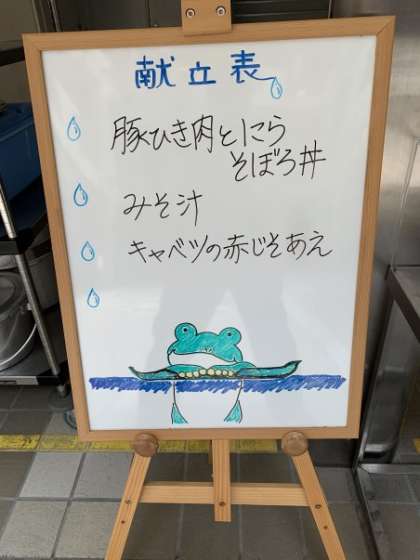 献立表
豚ひき肉とにら
そぼろ丼
みそ汁
キャベツの赤じそあえ